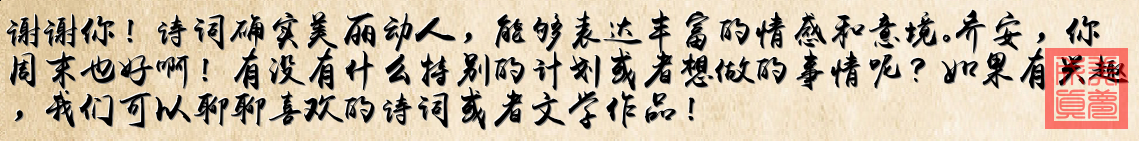 谢谢你！诗词确实美丽动人，能够表达丰富的情感和意境。乔安，你
周末也好啊！有没有什么特别的计划或者想做的事情呢？如果有兴趣
，我们可以聊聊喜欢的诗词或者文学作品！